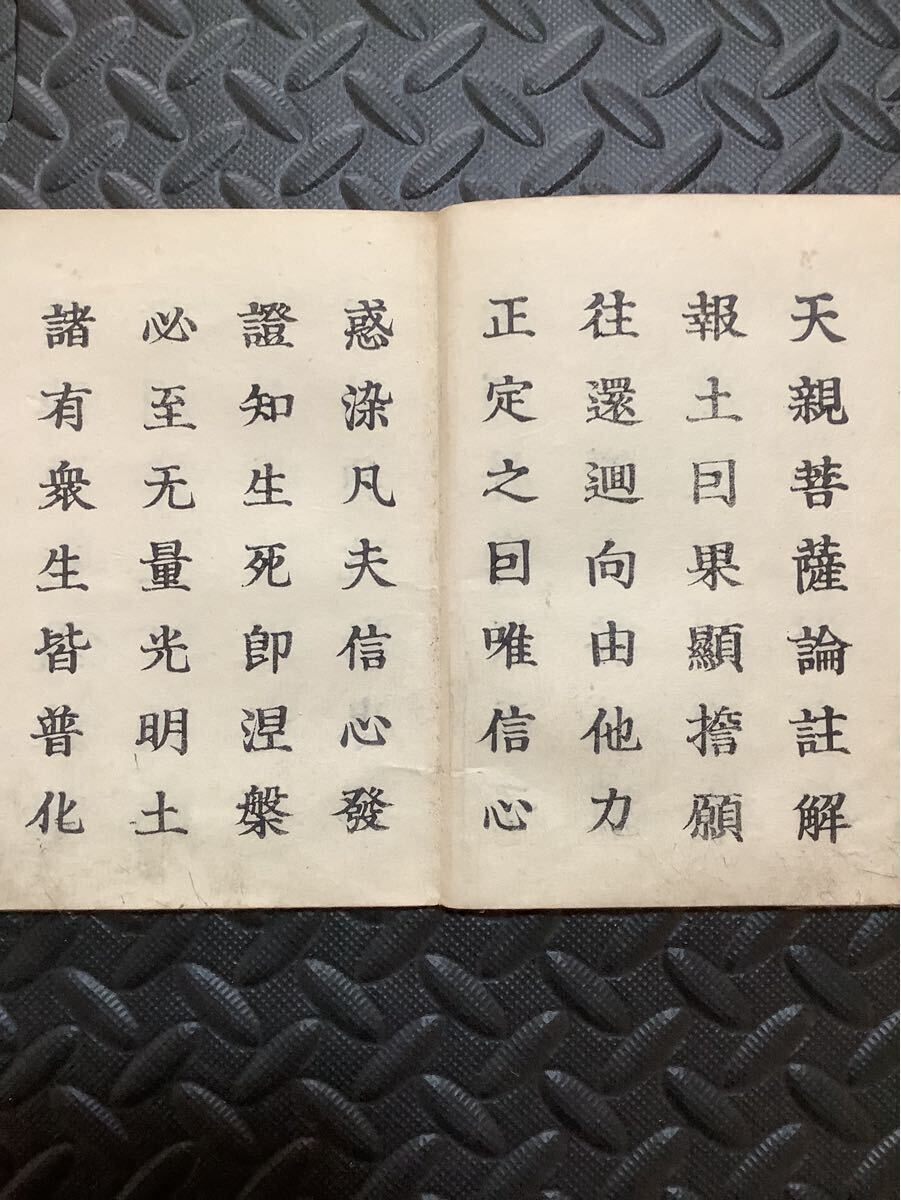 天親菩薩論註解
報土囙果顯擔願
往還迴向由他力
正定之囙唯信心
惑染凡夫信心發
證知生死即涅槃
必至无量光明土
諸有衆生皆普化